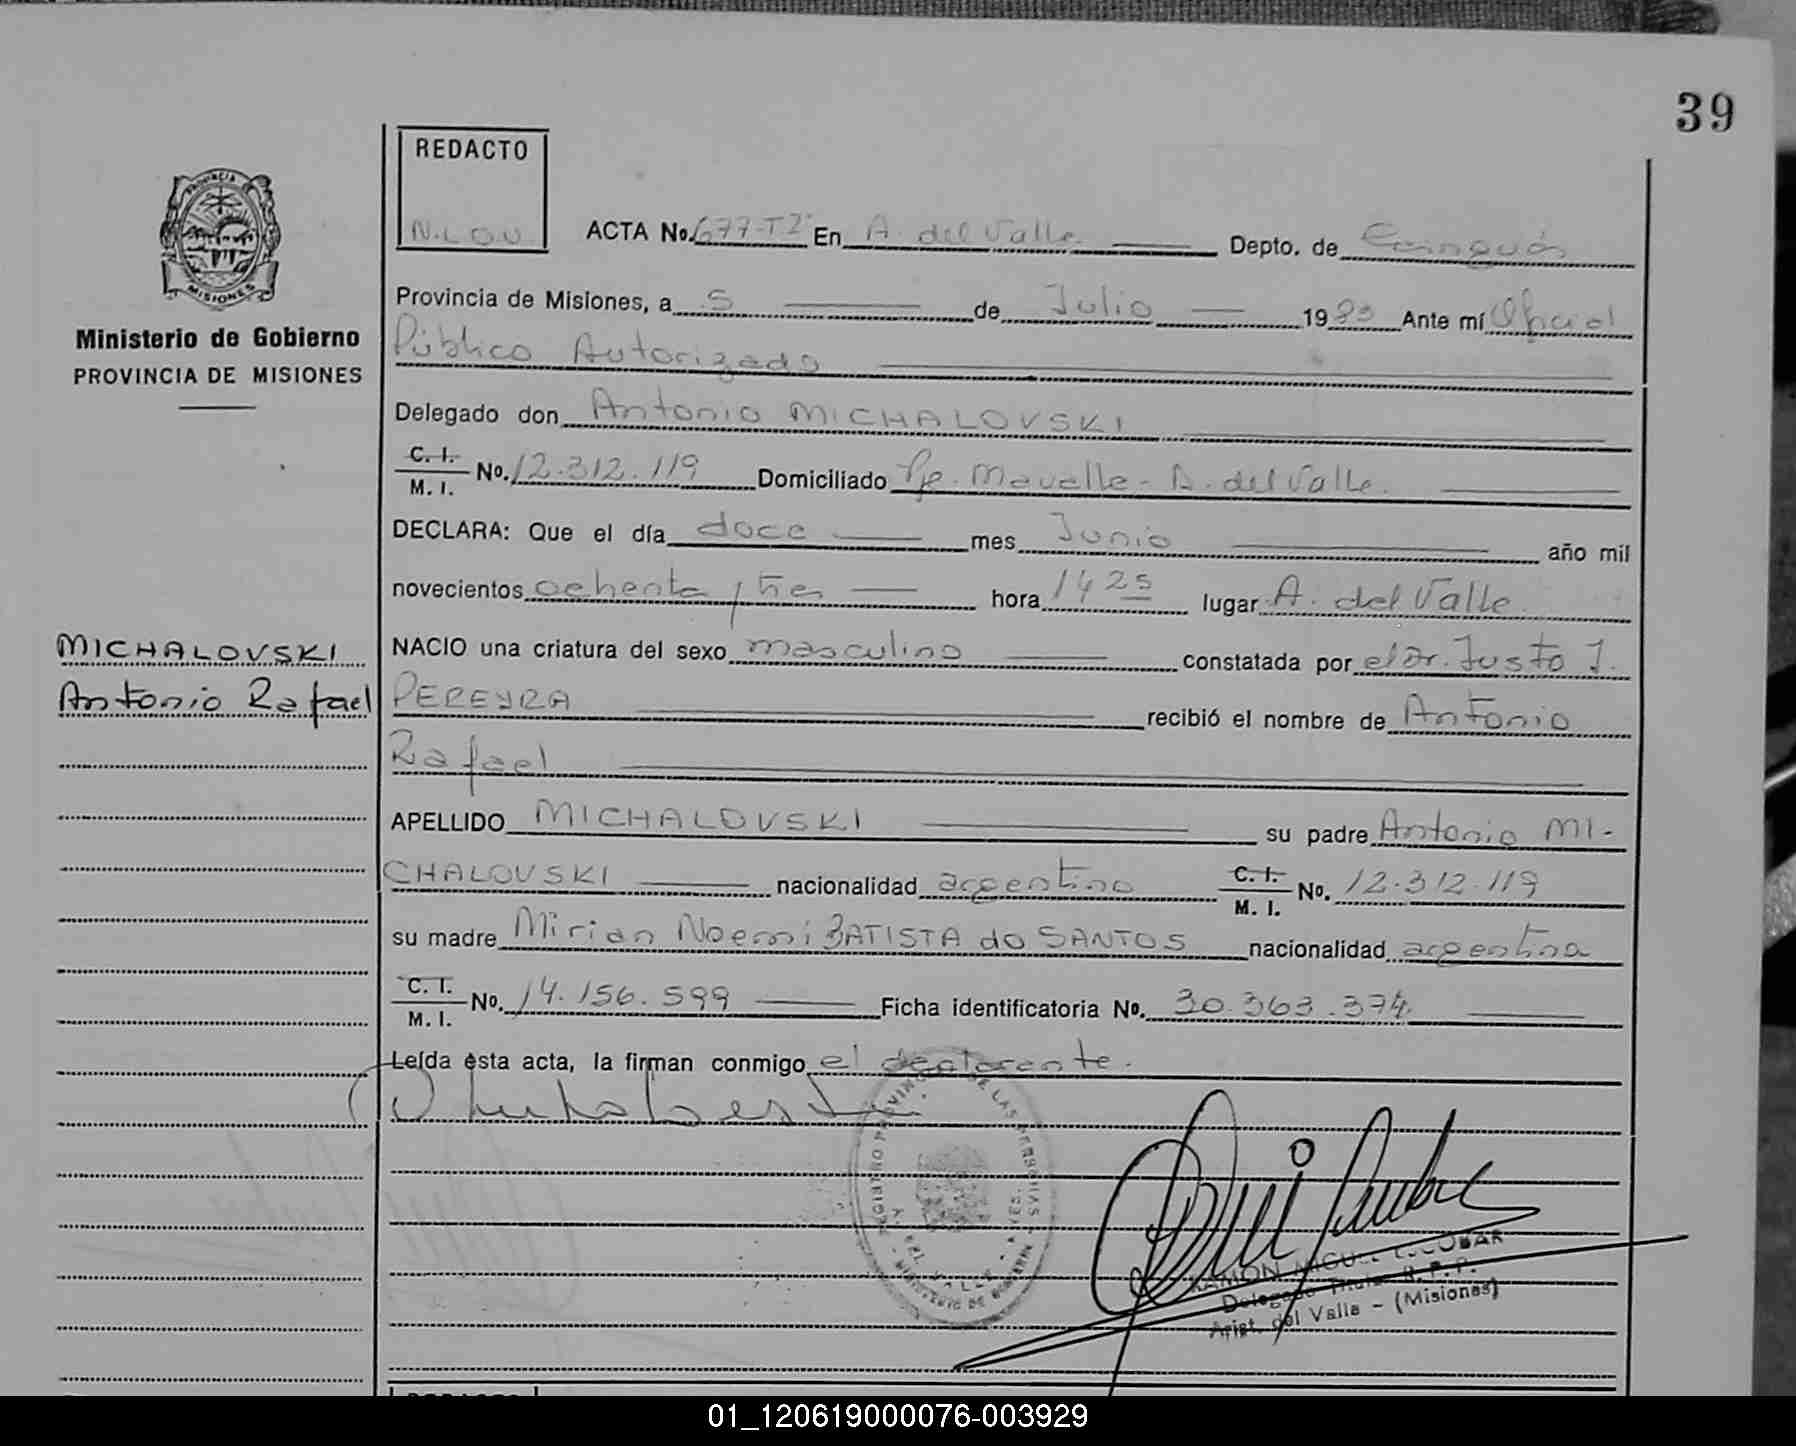 39
REDACTO
N.L.O.U.
PROVINCIA DE
MISIONES
ACTA No. 677-T2º En A del Valle Depto. de Cainguás
Ministerio de Gobierno
PROVINCIA DE MISIONES
Provincia de Misiones, a 5 de Julio 1983 Ante mí Oficial
Público Autorizado
Delegado don Antonio MICHALOVSKI
C. I. M. I. No. 12.312.119 Domiciliado Pje. Mavalle - A. del Valle.
DECLARA: Que el día doce mes Junio año mil
novecientos ochenta y tres hora 14 25 lugar A. del Valle
MICHALOVSKI
Antonio Rafael
NACIO una criatura del sexo masculino constatada por el Dr. Justo J.
PEREYRA recibió el nombre de Antonio
Rafael
APELLIDO MICHALOVSKI su padre Antonio MI-
CHALOVSKI nacionalidad argentino C. I. M. I. No. 12.312.119
su madre Mirian Noemi BATISTA do SANTOS nacionalidad argentina
C. I. M. I. No. 14.156.599 Ficha identificatoria No. 30.363.374
Leída ésta acta, la firman conmigo el declarante.
REGISTRO PROVINCIAL DE LAS PERSONAS
MINISTERIO DE GOBIERNO
RAMON MIGUEL ESCOBAR
Delegado Titular R. P. P.
Arist. del Valle - (Misiones)
REDACTO
01_120619000076-003929